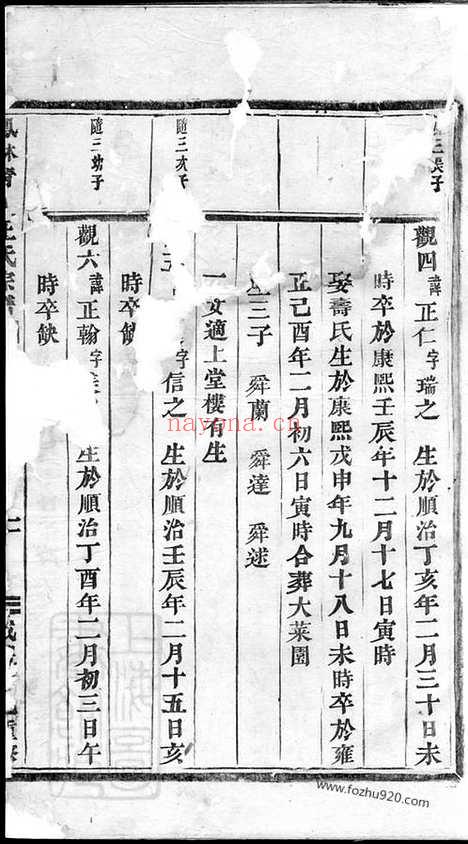 三長子
觀四諱正仁字瑞之 生於順治丁亥年二月三十日未
時卒於康熙壬辰年十二月十七日寅時
娶壽氏生於康熙戊申年九月十八日未時卒於雍
正己酉年二月初六日寅時合葬大菜園
三子 舜蘭 舜達 舜迷
一女適上堂樓有生
隨三次子
字信之 生於順治壬辰年二月十五日亥
時卒缺
隨三幼子
觀六諱正翰字 生於順治丁酉年二月初三日午
時卒缺
氏宗譜
nayona.cn
上海圖
www.fozhu920.com